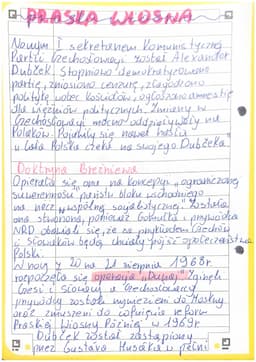 PRASKA WIOSNA
Nowym I sekretarzem Komunistycznej
Partii Czechosłowacji został Alexander
Dubček. Stopniowo demokratyzowano
partię, zniesiono cenzurę, złagodzono
politykę wobec kościołów, ogłoszono amnestię
dla więźniów politycznych. Zmiany w
Czechosłowacji mocno oddziaływały na
Polaków. Pojawiły się nawet hasła
"Cała Polska czeka na swojego Dubčeka"
Doktryna Breżniewa
Opierała się ona na koncepcji "ograniczonej
suwerenności państw bloku wschodniego
na rzecz wspólnej socjalistycznej". Została
ona stworzona, ponieważ Gomułka i przywódca
NRD obawiali się, że za przykładem Czechów
i Słowaków będą chciały pójść społeczeństwa
Polski.
W nocy z 20 na 21 sierpnia 1968r
rozpoczęła się operacja "Dunaj". Zginęli
Czesi i Słowacy a czechosłowaccy
przywódcy zostali wywiezieni do Moskwy
oraz zmuszeni do cofnięcia reform
Praskiej Wiosny. Później w 1969r
Dubček został zastąpiony
przez Gustáva Husáka w pełni